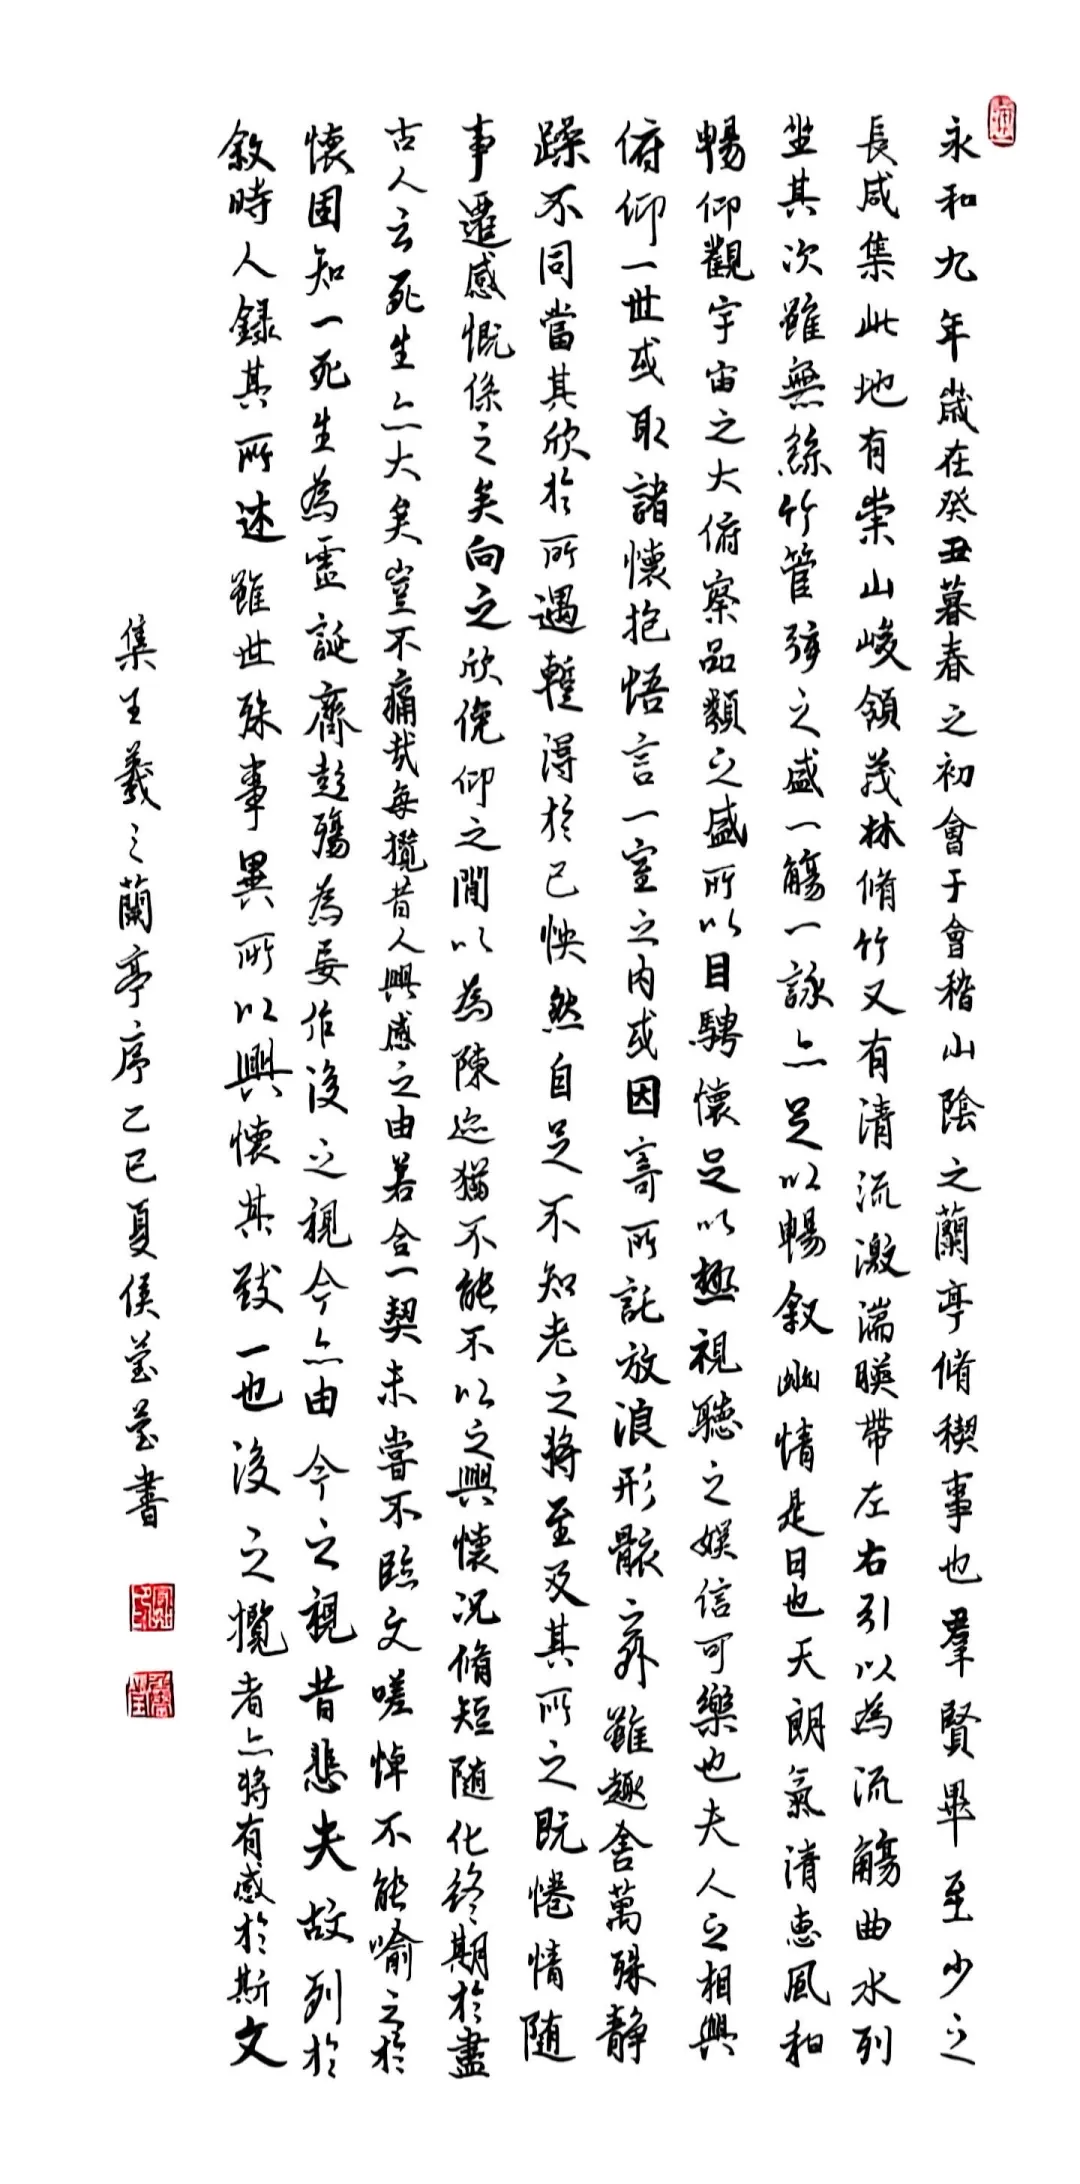 永和九年歲在癸丑暮春之初會于會稽山陰之蘭亭脩禊事也羣賢畢至少之
長咸集此地有崇山峻領茂林脩竹又有清流激湍暎帶左右引以為流觴曲水列
坐其次雖無絲竹管弦之盛一觴一詠亦足以暢敘幽情是日也天朗氣清惠風和
暢仰觀宇宙之大俯察品類之盛所以目騁懷足以極視聽之娛信可樂也夫人之相與
俯仰一世或取諸懷抱悟言一室之內或因寄所託放浪形骸之外雖趣舍萬殊静
躁不同當其欣於所遇暫得於己怏然自足不知老之將至及其所之既惓情随
事遷感慨係之矣向之欣俛仰之間以為陳迹猶不能不以之興懷况脩短随化終期於盡
古人云死生亦大矣豈不痛哉每攬昔人興感之由若合一契未嘗不臨文嗟悼不能喻之於
懷固知一死生為虛誕齊彭殤為妄作後之視今亦由今之視昔悲夫故列於
敘時人錄其所述雖世殊事異所以興懷其致一也後之攬者亦將有感於斯文
集王羲之蘭亭序乙巳夏侯瑩瑩書